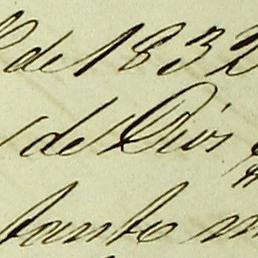 de 1832
de Dios
tanto